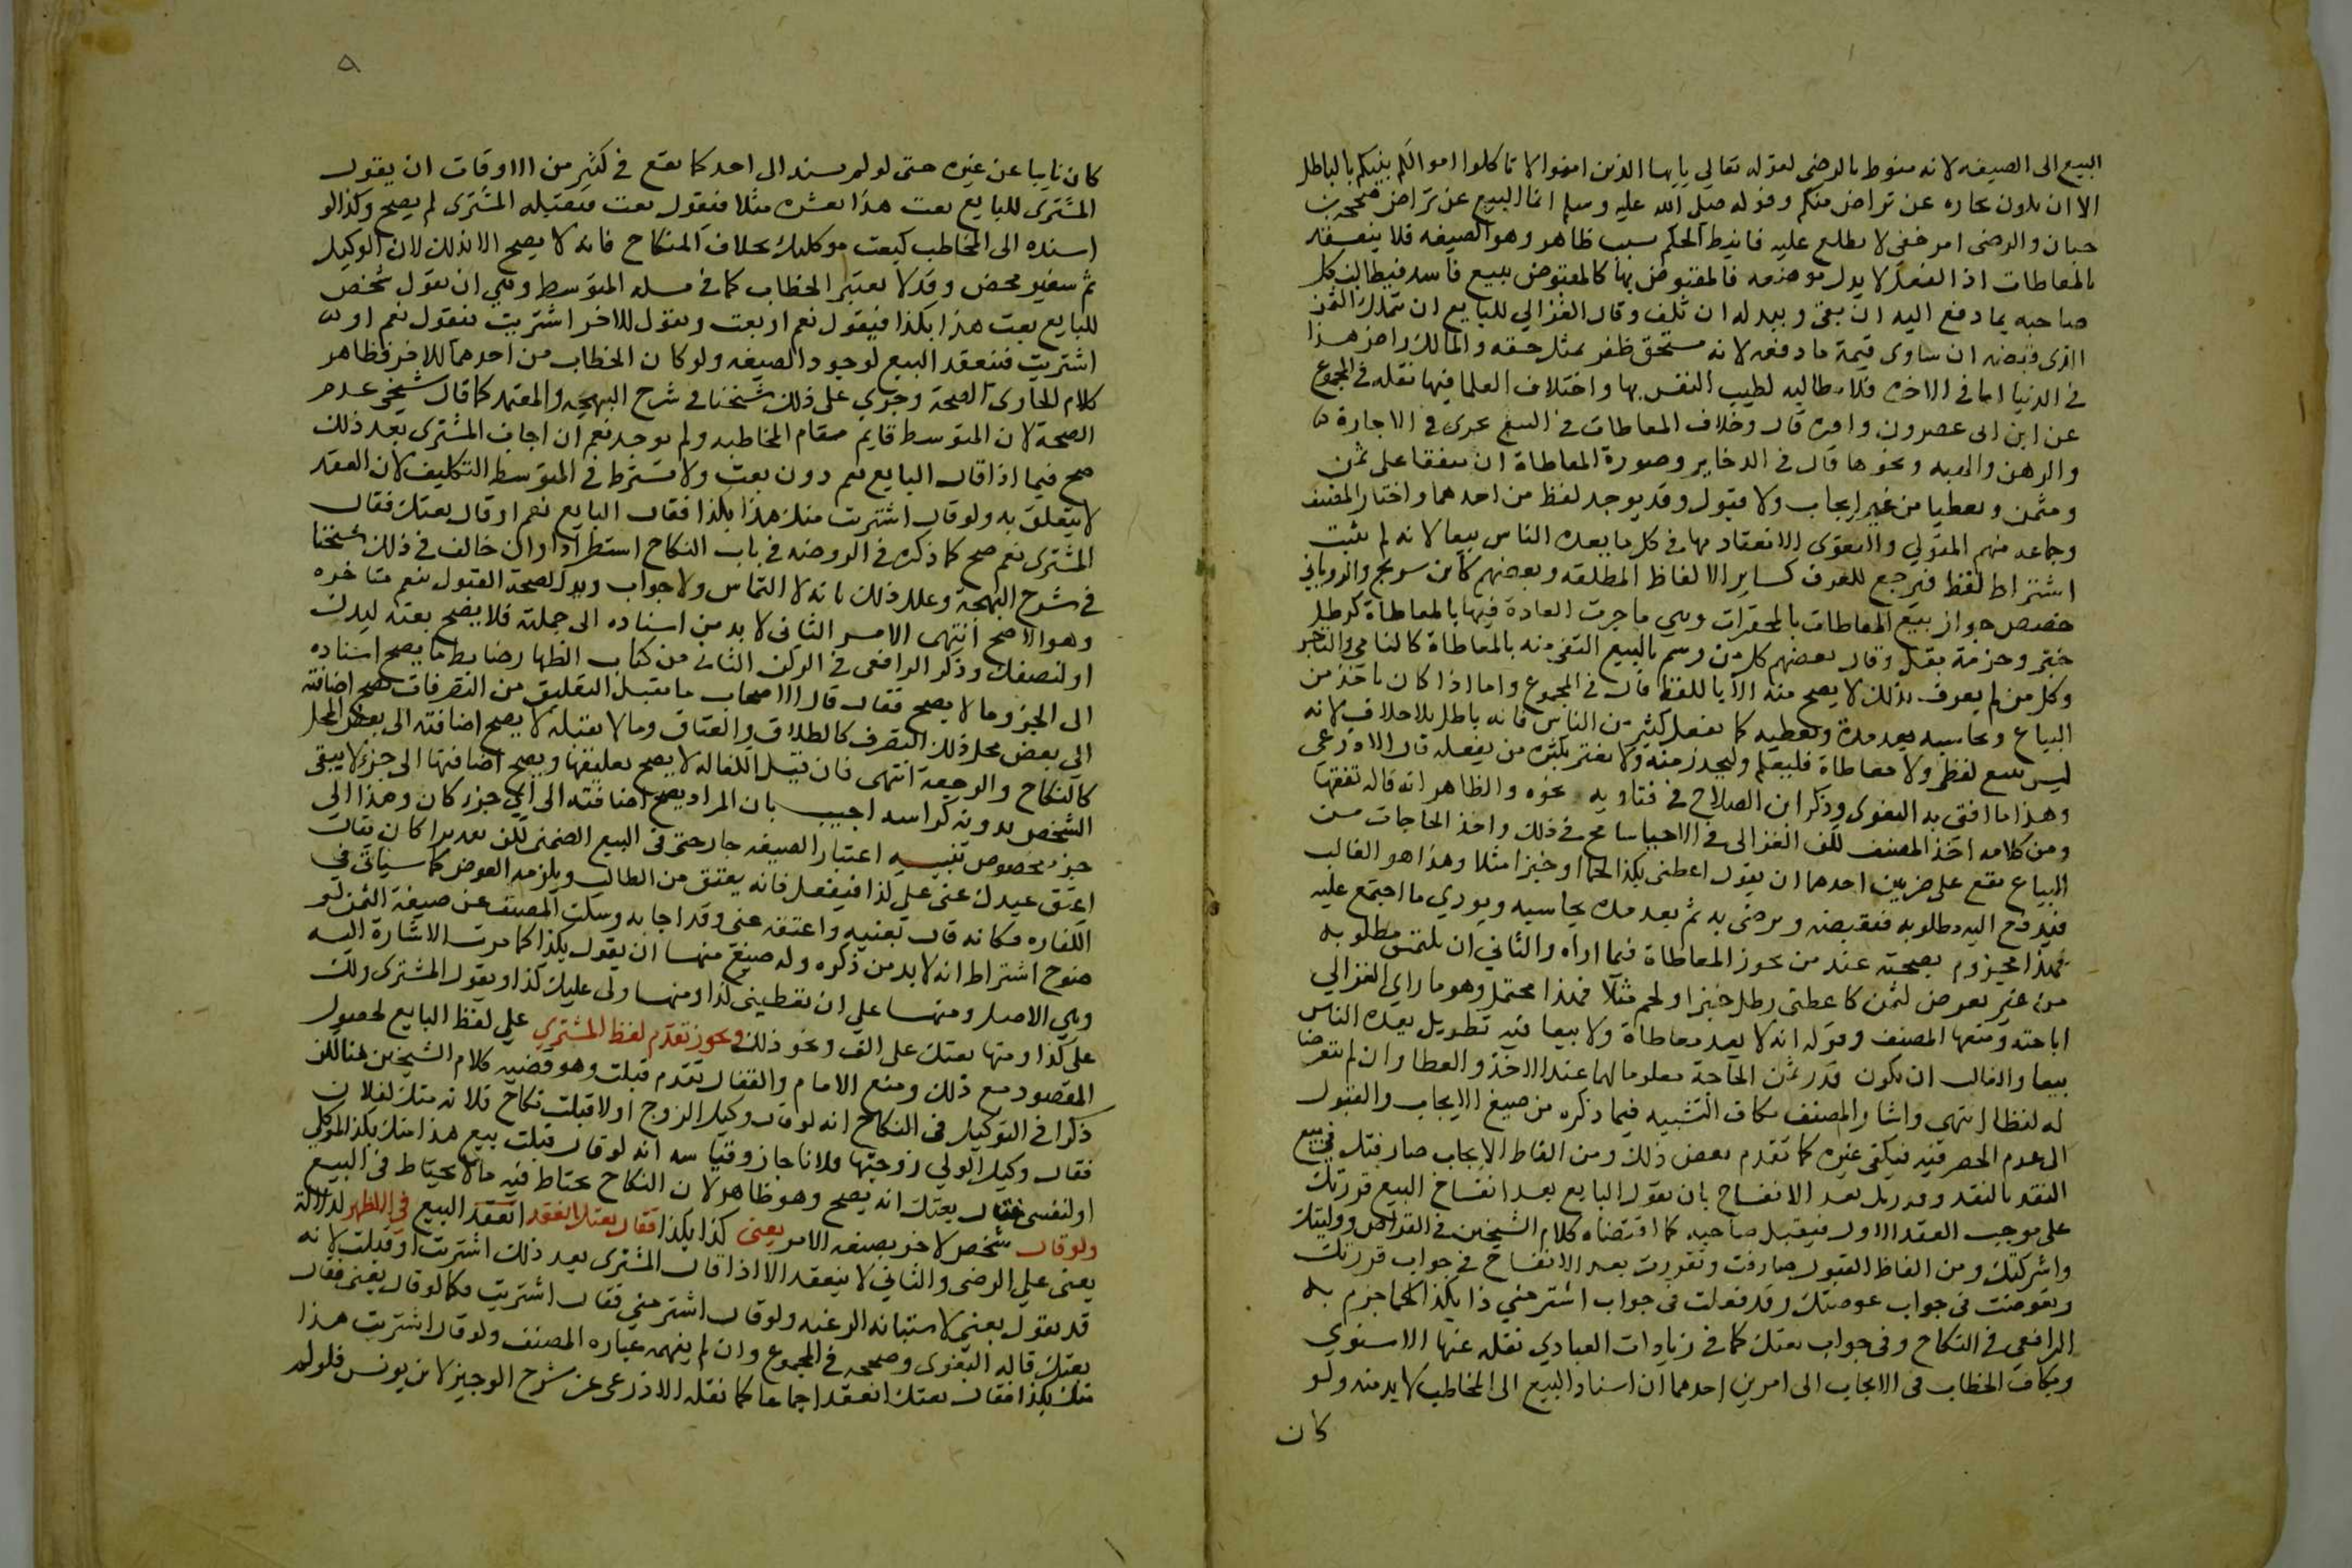 البيع الى الصيغه لانه منوط بالرضى لقوله تعالى يايها الذين امنوا لا تاكلوا اموالكم بينكم بالباطل
الا ان تكون تجاره عن تراض منكم وقوله صلى الله عليه وسلم انما البيع عن تراض صححه بن
حبان والرضى امر خفي لا يطلع عليه فانيط الحكم بسبب ظاهر وهو الصيغه فلا ينعقد
بالمعاطات اذ الفعل لا يدل بوضعه فالمقبوض بها كالمقبوض ببيع فاسد فيطالب كل
صاحبه بما دفع اليه ان بقى وببدله ان تلف وقال الغزالي للبايع ان تملك الثمن
الذى قبضه ان ساوى قيمة ما دفعه لانه مستحق ظفر بمثل حقه والمالك راض هذا
في الدنيا اما في الاخرة فلا مطالبه لطيب النفس بها واختلاف العلما فيها نقله في المجموع
عن ابن ابى عصرون واقره قال وخلاف المعاطات في البيع يجرى في الاجارة
والرهن والهبه ونحوها قال في الذخاير وصورة المعاطاة ان يتفقا على ثمن
ومثمن ويعطيا من غير ايجاب ولا قبول وقد يوجد لفظ من احدهما واختار المصنف
وجماعه منهم المتولي والبغوى الانعقاد بها في كل ما يعده الناس بيعا لانه لم يثبت
اشتراط لفظ فيرجع للعرف كساير الالفاظ المطلقه وبعضهم كابن سريج والروياني
خصص جواز بيع المعاطات بالمحقرات وهي ما جرت العادة فيها بالمعاطاة كرطل
خبز وحزمة بقل وقال بعضهم كل من وسم بالبيع اكتفى منه بالمعاطاة كالعامي والتاجر
وكل من لم يعرف بذلك لا يصح منه الا باللفظ قال في المجموع واما اذا كان ياخذ من
البياع ويحاسبه بعد مدة ويعطيه كما يفعل كثير من الناس فانه باطل بلا خلاف لانه
ليس ببيع لفظى ولا معاطاة فليعلم وليحذر منه ولا يغتر بكثرة من يفعله قال الاذرعى
وهذا ما افتى به البغوى وذكر ابن الصلاح في فتاويه نحوه والظاهر انه قاله تفقها
ومن كلامه اخذ المصنف لكن الغزالى في الاحيا سامح في ذلك واخذ الحاجات من
البياع يقع على ضربين احدهما ان يقول اعطنى بكذا لحما او خبزا مثلا وهذا هو الغالب
فيدفع اليه مطلوبه فيقبضه ويرضى به ثم بعد مدة يحاسبه ويودي ما اجتمع عليه
فهذا مجزوم بصحته عند من يجوز المعاطاة فيما اراه والثاني ان يلتمس مطلوبه
من غير تعرض لثمن كاعطنى رطل خبز او لحم مثلا فهذا محتمل وهو ما راي الغزالي
اباحته ومنعها المصنف وقوله انه لا يعد معاطاة ولا بيعا فيه تطويل يعده الناس
بيعا والغالب ان يكون قدر ثمن الحاجة معلوما لهما عند الاخذ والعطا وان لم يتعرضا
له لفظا انتهى واشار المصنف بكاف التشبيه فيما ذكره من صيغ الايجاب والقبول
الى عدم الحصر فيه فيكفى غيره كما تقدم بعض ذلك ومن الفاظ الايجاب صارفتك في بيع
النقد بالنقد وقررتك بعد الانفساخ بان يقول البايع بعد انفساخ البيع قررتك
على موجب العقد الاول فيقبل صاحبه كما اقتضاه كلام الشيخين في القراض ووليتك
واشركتك ومن الفاظ القبول صارفت وتقررت بعد الانفساخ في جواب قررتك
وتعوضت في جواب عوضتك وقد فعلت في جواب اشتر مني ذا بكذا كما جزم به
الرافعي في النكاح وفي جواب بعتك كما في زيادات العبادي نقله عنها الاسنوي
وبكاف الخطاب في الايجاب الى امرين احدهما ان اسناد البيع الى المخاطب لا بد منه ولو
كان
٥
كان نايبا عن غيره حتى لو لم يسند الى احد كما يقع في كثير من الاوقات ان يقول
المشترى للبايع بعت هذا بعشرة مثلا فيقول بعت فيقبله المشترى لم يصح وكذا لو
اسنده الى المخاطب كبعت موكلك بخلاف النكاح فانه لا يصح الا بذلك لان الوكيل
ثم سفير محض وقد لا يعتبر الخطاب كما في مسله المتوسط وهي ان يقول شخص
للبايع بعت هذا بكذا فيقول نعم او بعت ويقول للاخر اشتريت فيقول نعم او
اشتريت فينعقد البيع لوجود الصيغه ولو كان الخطاب من احدهما للاخر فظاهر
كلام الحاوى الصحة وجرى على ذلك شيخنا في شرح البهجه والمعتمد كما قال شيخى عدم
الصحة لان المتوسط قايم مقام المخاطبه ولم يوجد نعم ان اجاب المشترى بعد ذلك
صح فيما اذا قال البايع نعم دون بعت ولا يشترط في المتوسط التكليف لان العقد
لا يتعلق به ولو قال اشتريت منك هذا بكذا فقال البايع نعم او قال بعتك فقال
المشترى نعم صح كما ذكره في الروضه في باب النكاح استطرادا وان خالف في ذلك شيخنا
في شرح البهجة وعلل ذلك بانه لا التماس ولا جواب ويدل لصحة القبول بنعم متاخره
وهو الاصح انتهى الامر الثاني لا بد من اسناده الى جملته فلا يصح بعته ليدك
او لنصفك وذكر الرافعى في الركن الثانى من كتاب الظهار ضابط ما يصح اسناده
الى الجزو ما لا يصح فقال قال الاصحاب ما يقبل التعليق من التصرفات تصح اضافته
الى بعض محل ذلك التصرف كالطلاق والعتاق وما لا يقبله لا يصح اضافته الى بعض المحل
كالنكاح والرجعة انتهى فان قيل الكفاله لا يصح تعليقها ويصح اضافتها الى جزء لا يبقى
الشخص بدونه كراسه اجيب بان المراد يصح اضافته الى اي جزء كان وهذا الى
جزء مخصوص تنبيه اعتبار الصيغه جار حتى في البيع الضمنى لكن تقديرا كان يقال
اعتق عبدك عنى على كذا فيفعل فانه يعتق من الطالب ويلزمه العوض كما سياتى في
الكفاره فكانه قال بعنيه واعتقه عنى وقد اجابه وسكت المصنف عن صيغة الثمن لو
ضوح اشتراط انه لا بد من ذكره وله صيغ منها ان يقول بكذا كما مرت الاشارة اليه
وهي الاصل ومنها على ان تعطينى كذا ومنها ولى عليك كذا ويقول المشترى ولك
على كذا ومنها بعتك على الف ونحو ذلك ويجوز تقدم لفظ المشتري على لفظ البايع لحصول
المقصود مع ذلك ومنع الامام والقفال تقدم قبلت وهو قضيه كلام الشيخين هنا لكن
ذكرا في التوكيل في النكاح انه لو قال وكيل الزوج اولا قبلت نكاح فلانه منك لفلان
فقال وكيل الولي زوجتها فلانا جاز وقياسه انه لو قال قبلت بيع هذا منك بكذا لموكلي
او لنفسى فقال بعتك انه يصح وهو ظاهر لان النكاح يحتاط فيه ما لا يحتاط في البيع
ولو قال شخص لاخر بصيغه الامر بعنى كذا بكذا فقال بعتك انعقد البيع في الاظهر لدلالة
بعنى على الرضى والثاني لا ينعقد الا اذا قال المشترى بعد ذلك اشتريت او قبلت لانه
قد يقول بعنى لاستبانه الرغبه ولو قال اشتر مني فقال اشتريت فكما لو قال بعنى فقال
بعتك قاله البغوى وصححه في المجموع وان لم يفهمه عباره المصنف ولو قال اشتريت هذا
منك بكذا فقال بعتك انعقد اجماعا كما نقله الاذرعى عن شرح الوجيز لابن يونس فلو لم